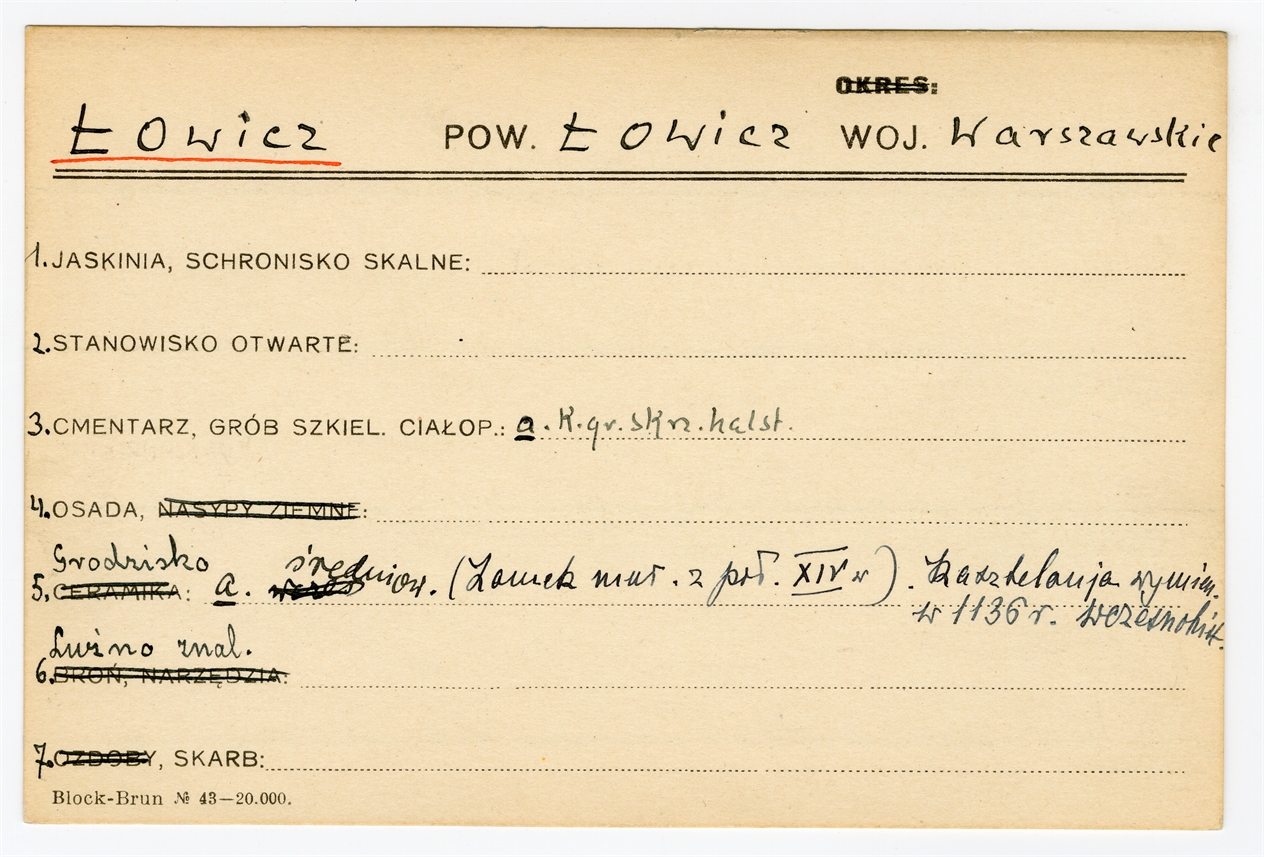 OKRES:
Łowicz POW. Łowicz WOJ. Warszawskie
1. JASKINIA, SCHRONISKO SKALNE:
2. STANOWISKO OTWARTE:
3. CMENTARZ, GRÓB SZKIEL. CIAŁOP.: a. K. gr. skrz. halst.
4. OSADA, NASYPY ZIEMNE:
Grodzisko
5. CERAMIKA: a. średniow. (Zamek mur. z poł. XIV w). Kasztelanja wymien.
w 1136 r. wczesnohist.
Luźno znal.
6. BROŃ, NARZĘDZIA:
7. OZDOBY, SKARB:
Block-Brun № 43—20.000.